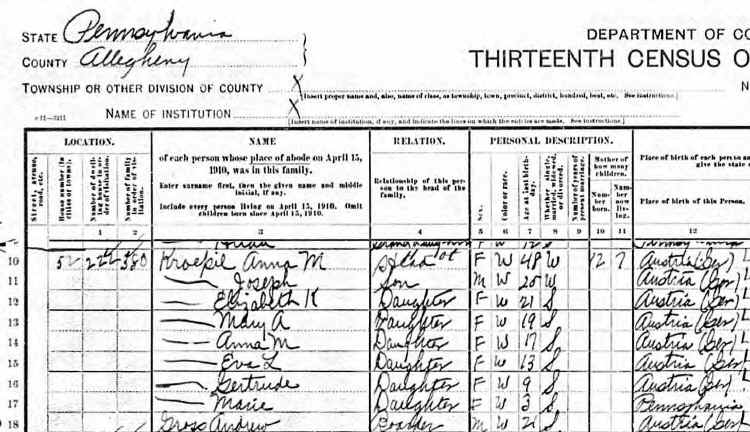 STATE Pennsylvania
COUNTY Allegheny
TOWNSHIP OR OTHER DIVISION OF COUNTY X
[Insert proper name and, also, name of class, as township, town, precinct, district, hundred, beat, etc. See instructions.]
NAME OF INSTITUTION X
[Insert name of institution, if any, and indicate the lines on which the entries are made. See instructions.]
DEPARTMENT OF CO
THIRTEENTH CENSUS O
N
LOCATION.
Street, avenue, road, etc.
House number (in cities or towns).
Number of dwelling house in order of visitation.
Number of family in order of visitation.
NAME
of each person whose place of abode on April 15, 1910, was in this family.
Enter surname first, then the given name and middle initial, if any.
Include every person living on April 15, 1910. Omit children born since April 15, 1910.
RELATION.
Relationship of this person to the head of the family.
PERSONAL DESCRIPTION.
Sex.
Color or race.
Age at last birthday.
Whether single, married, widowed, or divorced.
Number of years of present marriage.
Mother of how many children.
Number born.
Number now living.
Place of birth of each person an
give the state
Place of birth of this Person.
1 2 3 4 5 6 7 8 9 10 11 12
F W 12 S
10 52 222 380 Kroepil Anna M Head F W 48 W 12 7 Austria (Ger)
11 — Joseph Son M W 20 W Austria (Ger)
12 — Elizabeth K Daughter F W 21 S Austria (Ger)
13 — Mary A Daughter F W 19 S Austria (Ger)
14 — Anna M Daughter F W 17 S Austria (Ger)
15 — Eva L Daughter F W 13 S Austria (Ger)
16 — Gertrude Daughter F W 9 S Austria (Ger)
17 — Marie Daughter F W 3 S Pennsylvania
18 Gross Andrew Boarder M W 21 S Austria (Ger)